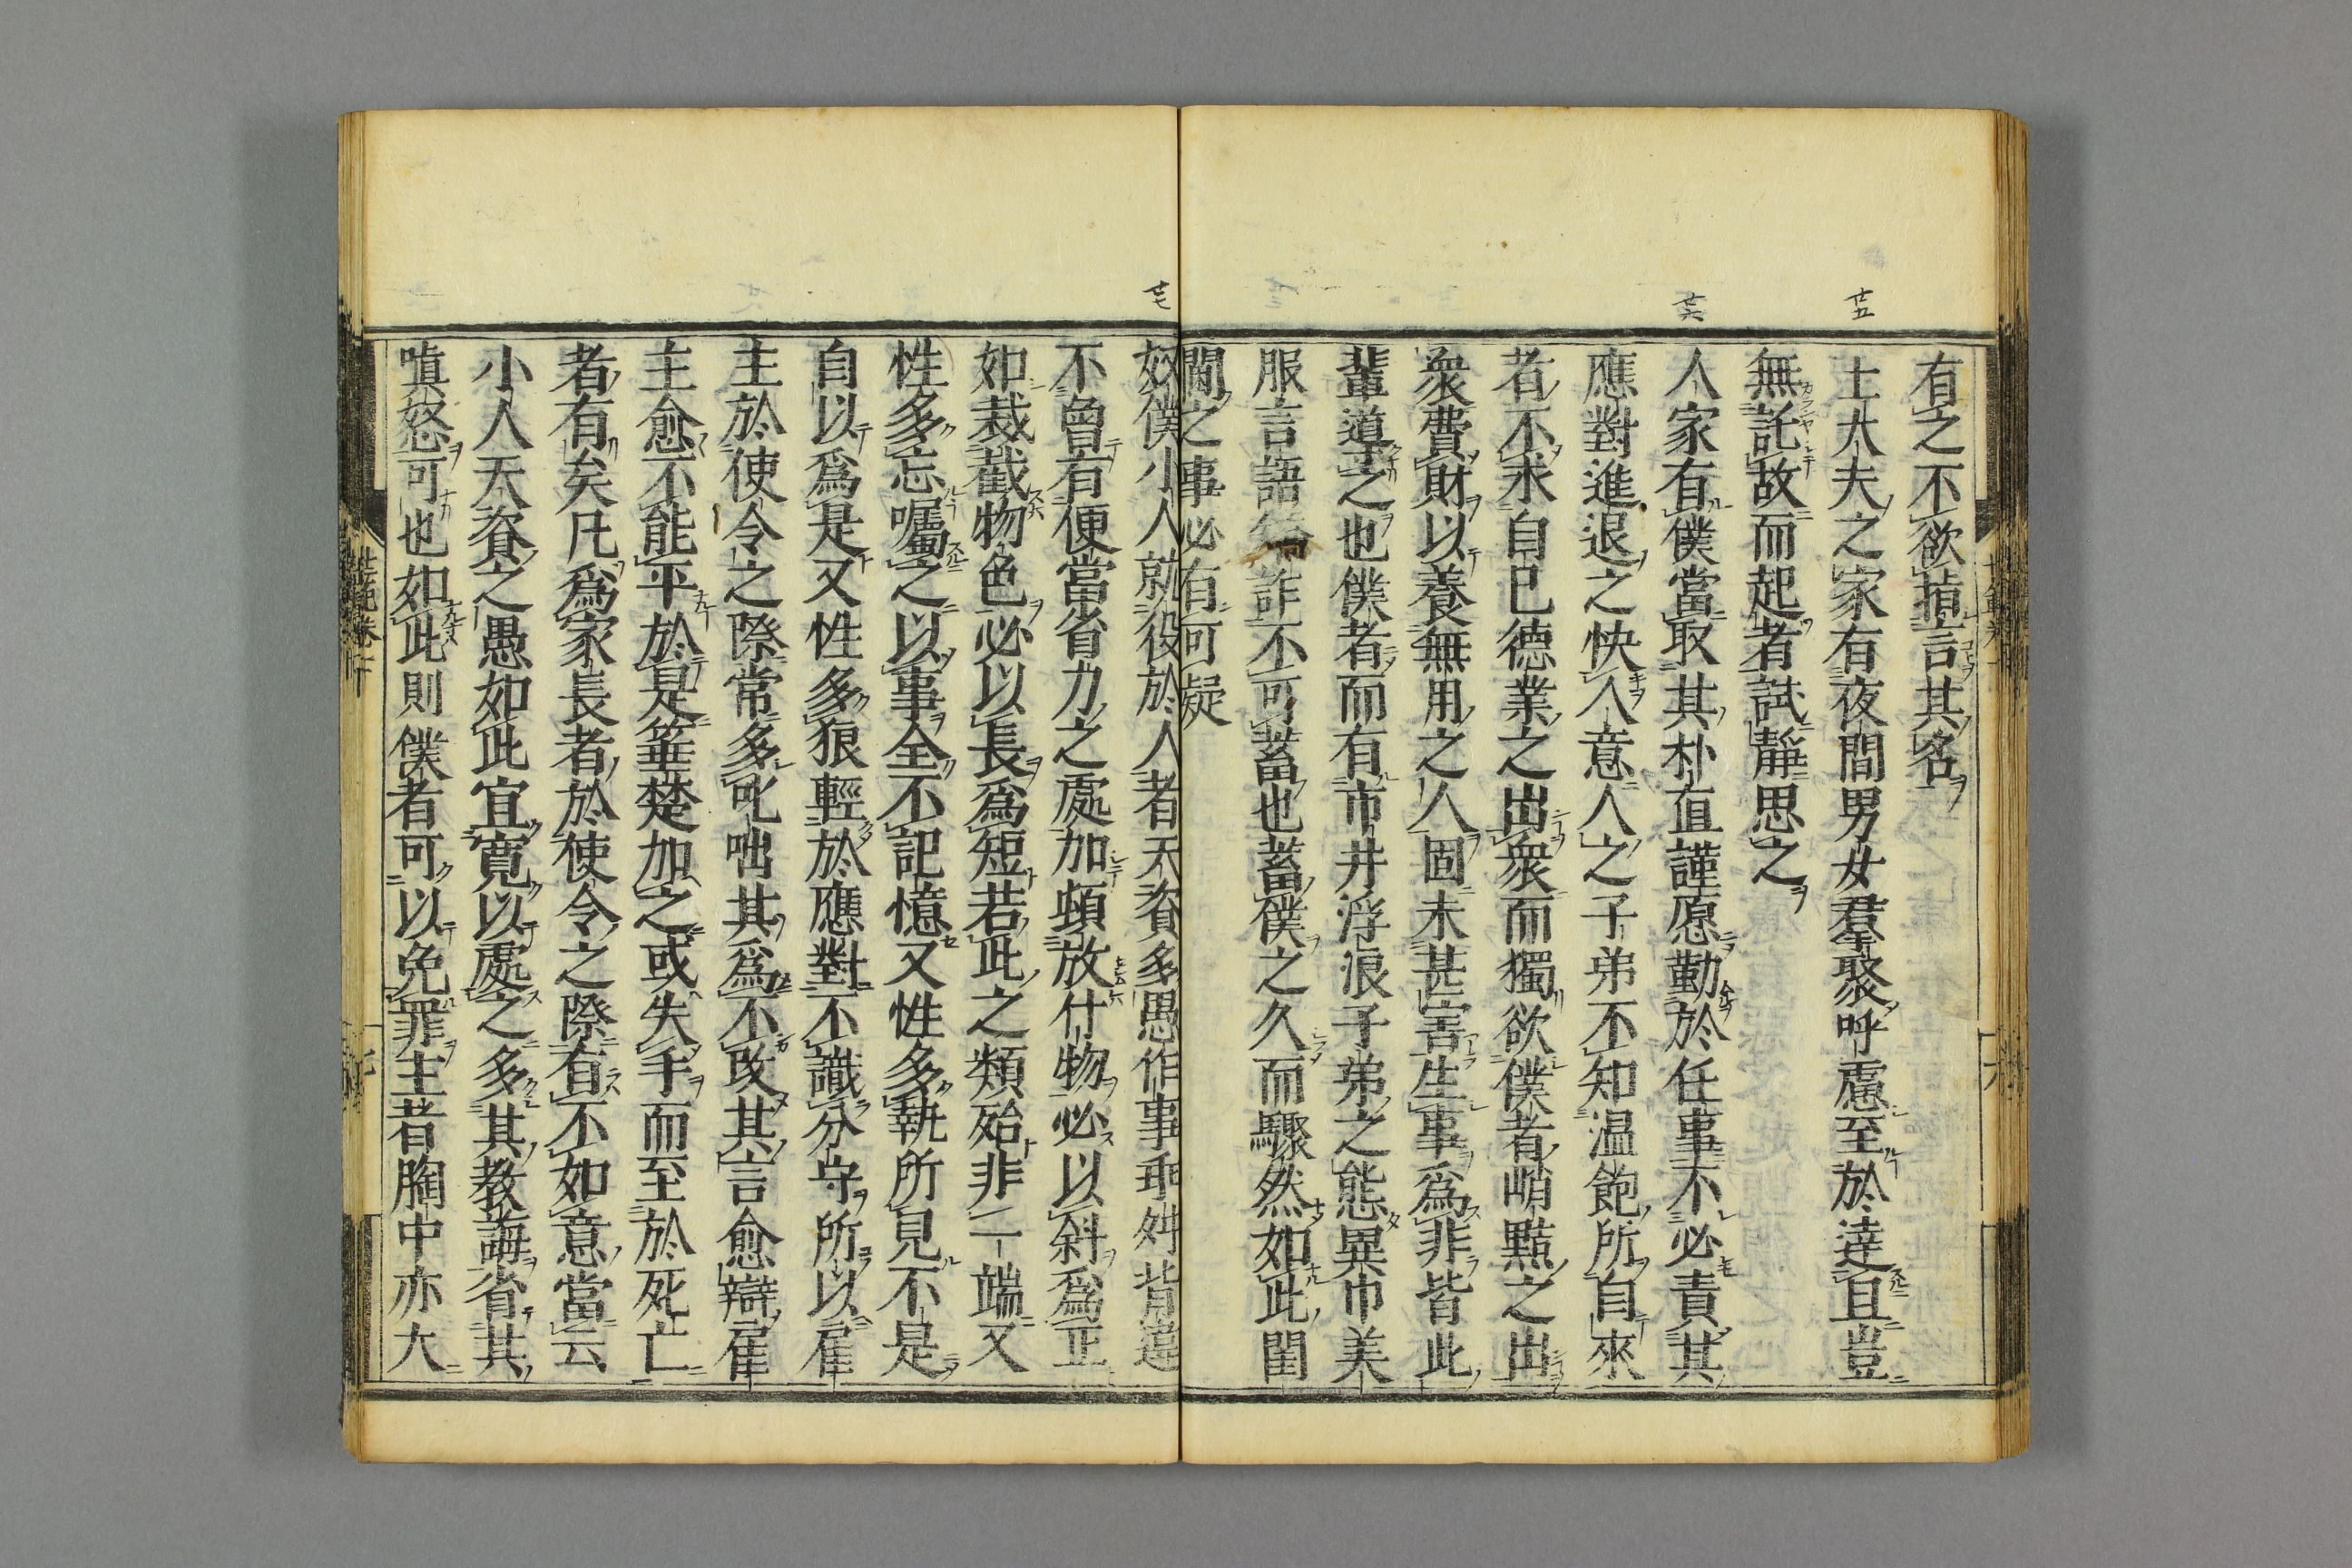 廿五
廿六
有之不欲指言其名
士大夫之家有夜間男女群聚呼慮至於達旦豈
無託故而起者試靜思之
人家有僕當取其朴直謹愿勤於任事不必責其
應對進退之快人意人之子弟不知温飽所自來
者不求自己德業之出衆而獨欲僕者峭黠之出
衆費財以養無用之人固未甚害生事爲非皆此
輩導之也僕者而有市井浮浪子弟之態異巾美
服言語詐不可蓄也蓄僕之久而驟然如此閨
閫之事必有可疑
廿七
奴僕小人就役於人者天資多愚作事乖舛背違
不曾有便當省力之處加頓放什物必以斜爲正
如裁截物色必以長爲短若此之類殆非一端又
性多忘囑之以事全不記憶又性多執所見不是
自以爲是又性多狠輕於應對不識分守所以雇
主於使令之際常多叱咄其爲不改其言愈辯雇
主愈不能平於是箠楚加之或失手而至於死亡
者有矣凡爲家長者於使令之際有不如意當云
小人天資之愚如此宜寬以處之多其教誨省其
嗔怒可也如此則僕者可以免罪主者胸中亦大
世範卷